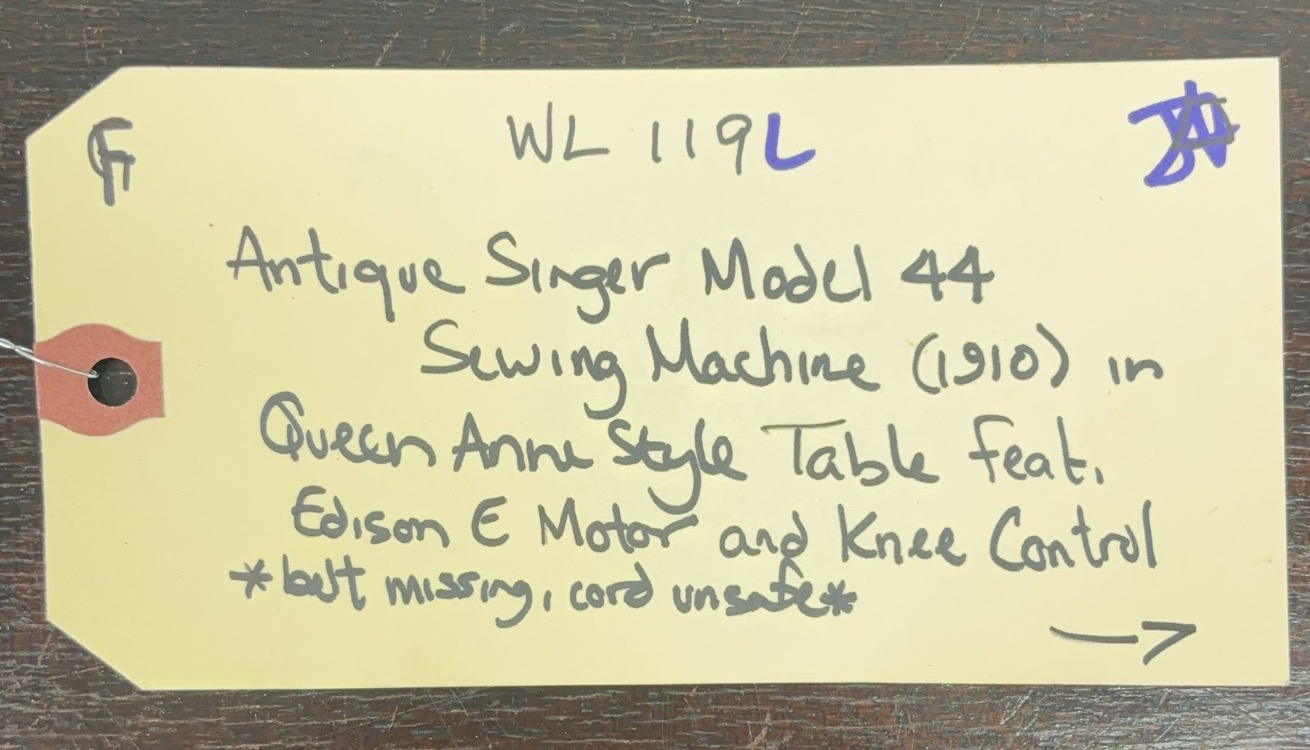 WL 119L
Antique Singer Model 44
Sewing Machine (1910) in
Queen Anne Style Table feat.
Edison E Motor and Knee Control
*belt missing, cord unsafe*